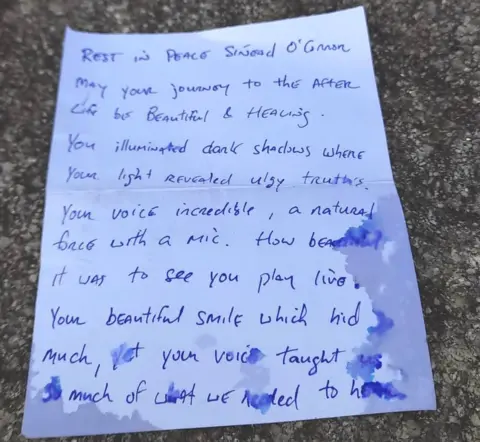 REST IN PEACE SINEAD O'Connor
May your journey to the AFTER
Life be BEAUTIFUL & HEALING.
You illuminated dark shadows where
Your light REVEALED ulgy truth's.
Your voice incredible, a natural
force with a mic. How beautiful
it was to see you play live.
Your beautiful smile which hid
much, yet your voice taught us
so much of what we needed to hear